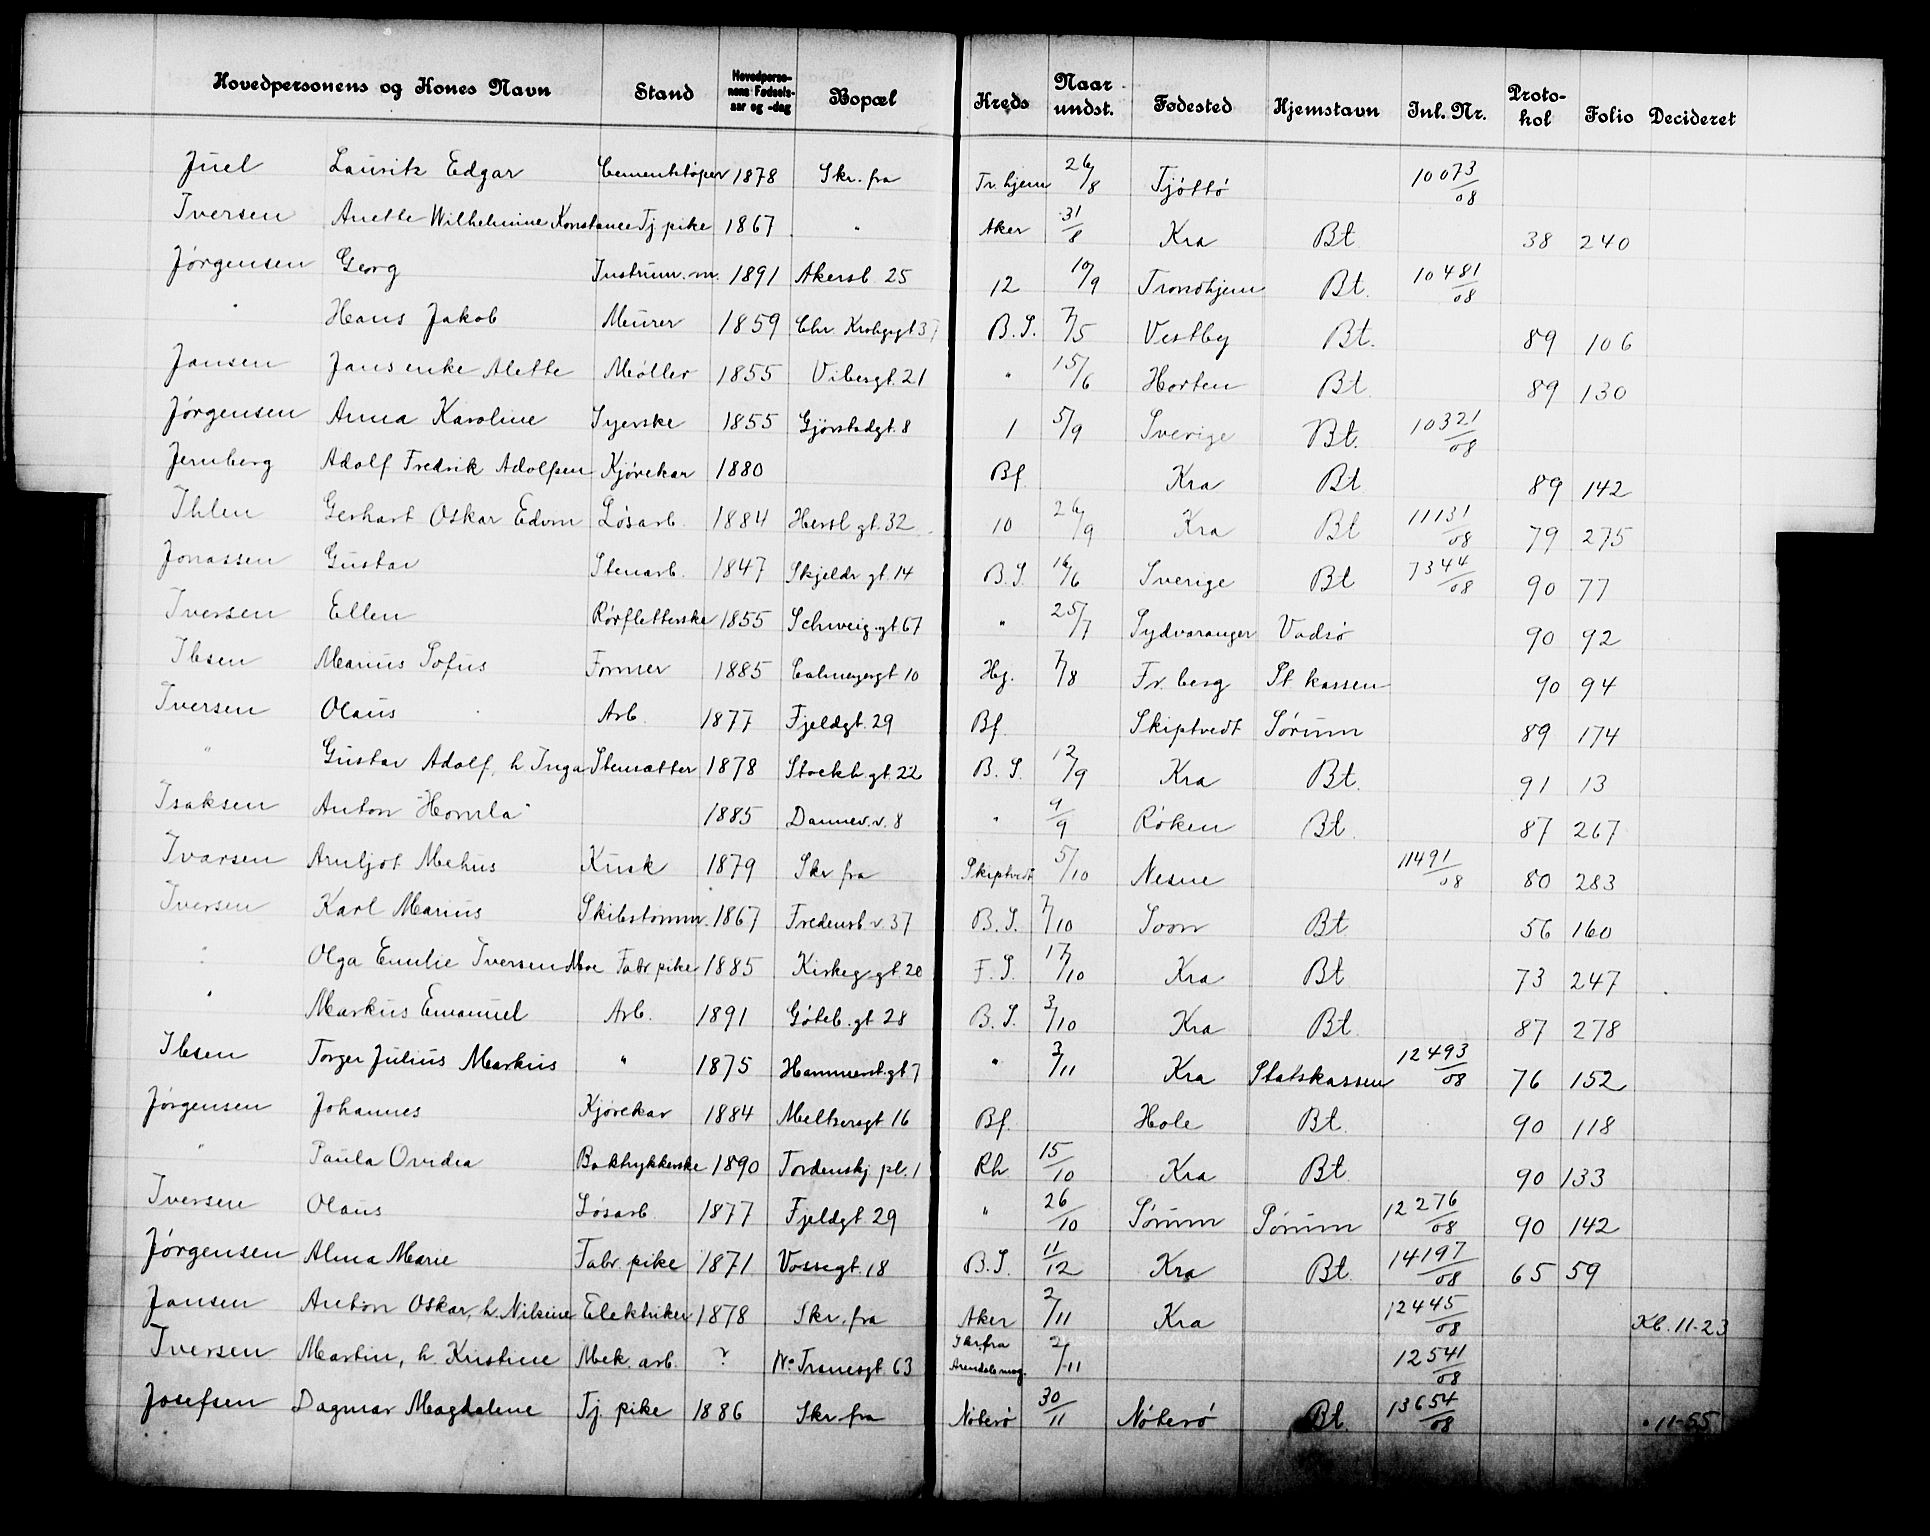 Hovedpersonens og Kones Navn Stand Hovedpersonens Fødselsaar og -dag Bopæl Kreds Naar undst. Fødested Hjemstavn Inl. Nr. Protokol Folio Decideret
Juel Lauritz Edgar Cementstøper 1878 Skr. fra Tr.hjem 26/8 Tjøttø 10073/08
Iversen Anette Wilhelmine Konstance Tj pike 1867 " Aker 31/8 Kra Bt 38 240
Jørgensen Georg Instrum.m. 1891 Akersb. 25 12 10/9 Trondhjem Bt. 10481/08
" Hans Jakob Meurer 1859 Chr. Krohgsgt 37 B.S. 7/5 Vestby Bt. 89 106
Jansen Jansenke Alette Møller 1855 Vibesgt. 21 " 15/6 Horten Bt 89 130
Jørgensen Anna Karoline Syerske 1855 Gjørstadgt. 8 1 5/9 Sverige Bt. 10321/08
Jernberg Adolf Fredrik Adolfsen Kjørekar 1880 Bf. Kra Bt 89 142
Ihlen Gerhart Oskar Edvin Løsarb. 1884 Hersl. gt. 32 10 26/9 Kra Bt 11131/08 79 275
Jonassen Gustav Stenarb. 1847 Skjeldr gt. 14 B.S. 16/6 Sverige Bt 7344/08 90 77
Iversen Ellen Rørfletterske 1855 Schweig.gt 67 " 25/7 Sydvaranger Vadsø 90 92
Ibsen Marius Sofus Former 1885 Calmeyergt 10 Hg. 7/8 Fr. berg St kassen 90 94
Iversen Olaus Arb. 1877 Fjeldgt. 29 Bf. Skiptvedt Sørum 89 174
" Gustav Adolf, h Inga Stensætter 1878 Stockh.gt. 22 B.S. 12/9 Kra Bt. 91 13
Isaksen Anton "Homla" 1885 Dannev.v. 8 " 9/9 Røken Bt. 87 267
Ivarsen Arnljot Mehus Kusk 1879 Skr fra Skiptvedt 5/10 Nesne 11491/08 80 283
Iversen Karl Marius Skibstømm. 1867 Fredensb.v. 37 B.S. 7/10 Soon Bt 56 160
" Olga Emilie Iversen Moe Fabr pike 1885 Kirkeg.gt 20 F.S. 17/10 Kra Bt 73 247
" Markus Emanuel Arb. 1891 Gøteb.gt 28 B.S. 3/10 Kra Bt. 87 278
Ibsen Torger Julius Markus " 1875 Hammersb.gt 7 " 3/11 Kra Statskassen 12493/08 76 152
Jørgensen Johannes Kjørekar 1884 Meltzersgt 16 Bf. Hole Bt. 90 118
" Paula Ovidia Boktrykkerske 1890 Tordenskj. pl. 1 Rh. 15/10 Kra Bt. 90 133
Iversen Olaus Løsarb. 1877 Fjeldgt. 29 " 26/10 Sørum Sørum 12276/08 90 142
Jørgensen Alma Marie Fabr. pike 1871 Vossegt. 18 B.S. 11/12 Kra Bt. 14197/08 65 59
Jansen Anton Oskar, h. Nilsine Elektriker 1878 Skr. fra Aker 2/11 Kra 12445/08 Kl. 11-23
Iversen Martin, h. Kristine Mek. arb. ? No Tranesgt. 63 Skr. fra Arendals mag. 2/11 12541/08
Josefsen Dagmar Magdalene Tj. pike 1886 Skr. fra Nøterø 30/11 Nøterø Bt. 13654/08 " 11-55